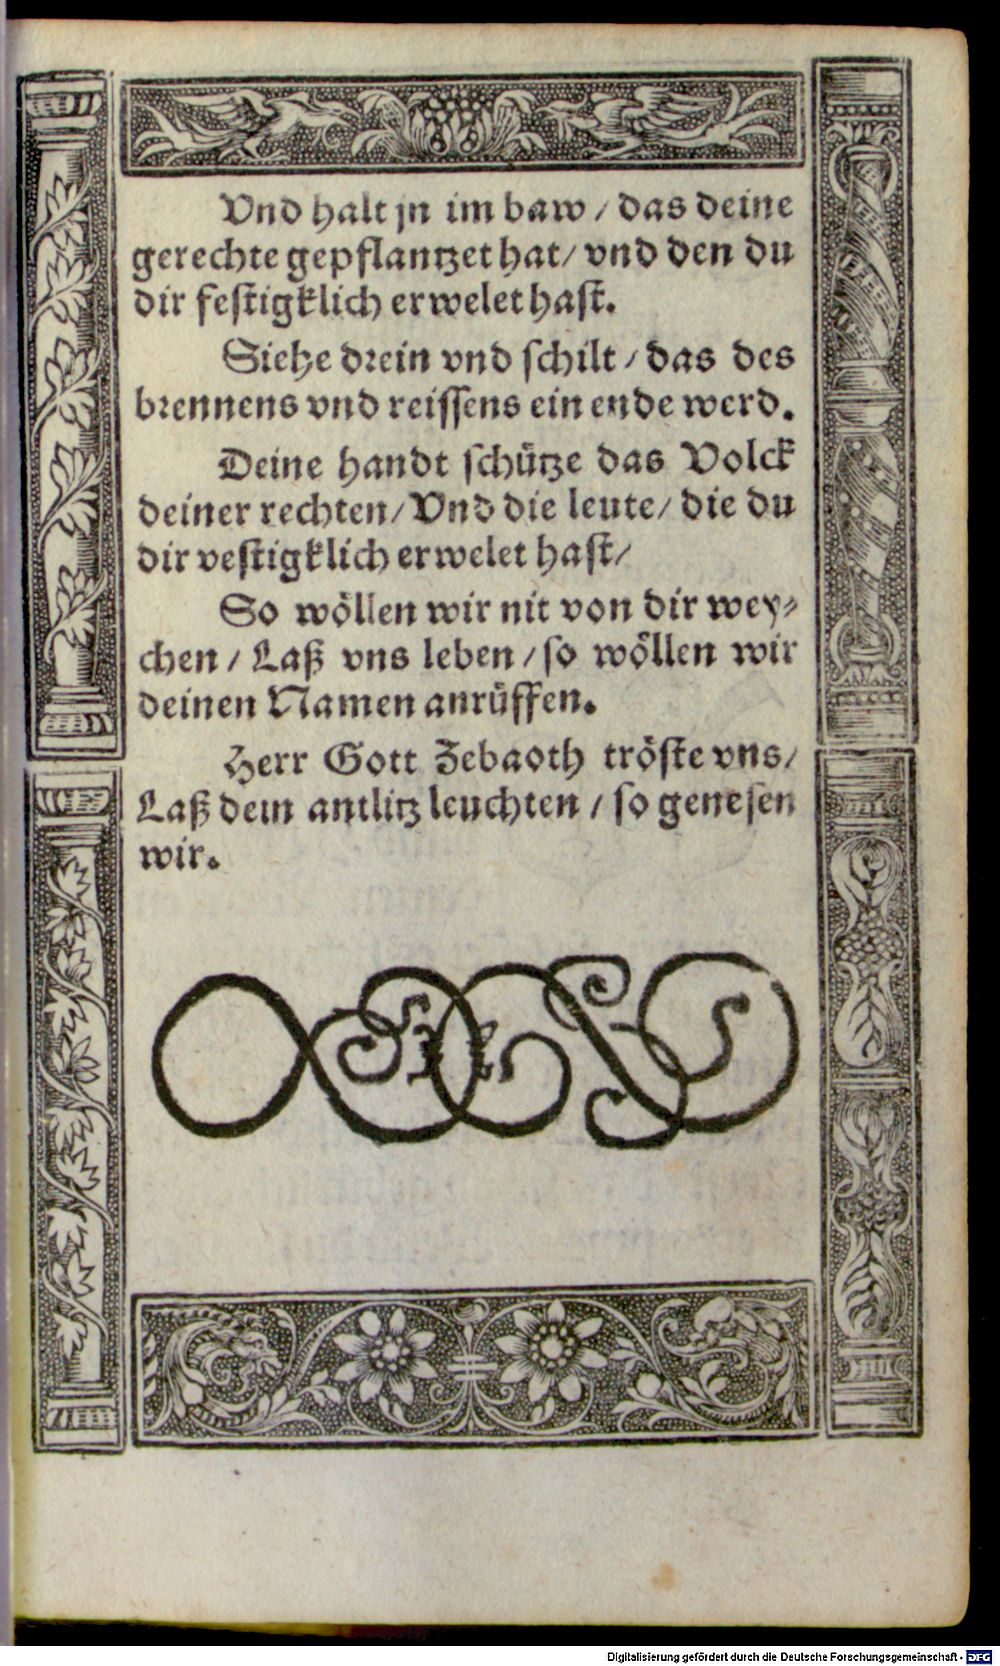 Vnd halt jn im baw / das deine
gerechte gepflantzet hat / vnd den du
dir festigklich erwelet hast.
Siehe drein vnd schilt / das des
brennens vnd reissens ein ende werd.
Deine handt schütze das Volck
deiner rechten / Vnd die leute / die du
dir vestigklich erwelet hast /
So wöllen wir nit von dir wey⸗
chen / Laß vns leben / so wöllen wir
deinen Namen anrüffen.
Herr Gott Zebaoth tröste vns /
Laß dein antlitz leuchten / so genesen
wir.
Digitalisierung gefördert durch die Deutsche Forschungsgemeinschaft - DFG